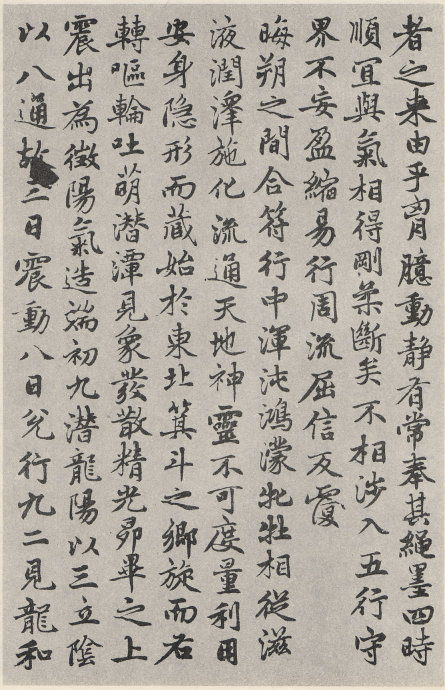 者之来由乎胷臆動靜有常奉其繩墨四時
順宜與氣相得剛柔斷矣不相涉入五行守
界不妄盈縮易行周流屈信反覆
晦朔之間合符行中渾沌鴻濛牝牡相從滋
液潤澤施化流通天地神靈不可度量利用
安身隠形而藏始於東北箕斗之鄉旋而右
轉嘔輪吐萌潜潭見象發散精光昴畢之上
震出為徵陽氣造端初九潜龍陽以三立陰
以八通故三日震動八日兊行九二見龍和